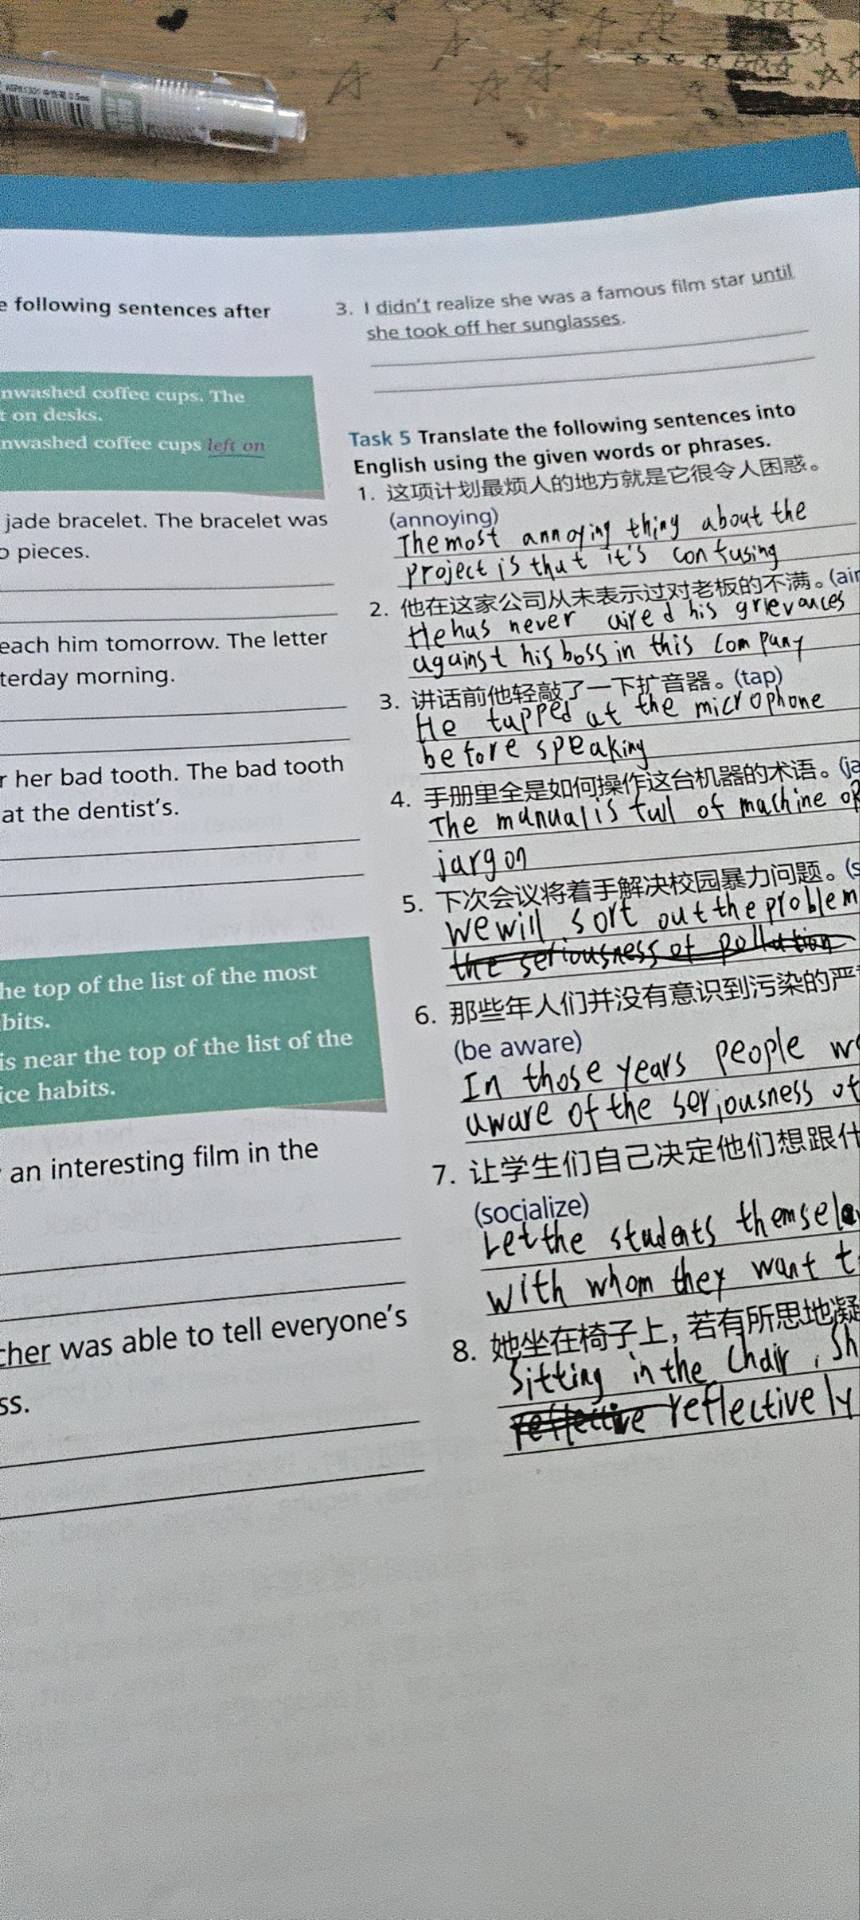 e following sentences after
nwashed coffee cups. The
t on desks.
nwashed coffee cups left on
jade bracelet. The bracelet was
o pieces.
each him tomorrow. The letter
terday morning.
r her bad tooth. The bad tooth
at the dentist's.
he top of the list of the most
bits.
is near the top of the list of the
ice habits.
an interesting film in the
cher was able to tell everyone's
ss.
3. I didn't realize she was a famous film star until
she took off her sunglasses.
Task 5 Translate the following sentences into
English using the given words or phrases.
1. 这项计划最烦人的地方就是它很令人困惑。
(annoying)
The most annoying thing about the
project is that it's confusing
2. 他在这家公司从未表示过对老板的不满。(air
He has never aired his grievances
against his boss in this company
3. 讲话前他轻敲了一下扩音器。(tap)
He tapped at the microphone
before speaking
4. 手册里全是如何操作这台机器的术语。(ja
The manual is full of machine op
jargon
5. 下次会议将着手解决校园暴力问题。(s
we will sort out the problem
the seriousness of pollution
6. 那些年人们并没有意识到污染的严
(be aware)
In those years people w
aware of the seriousness of
7. 让学生们自己决定他们想跟什
(socialize)
Let the students themsel
with whom they want t
8. 她坐在椅子上，若有所思地凝
Sitting in the chair, sh
reflective reflectively